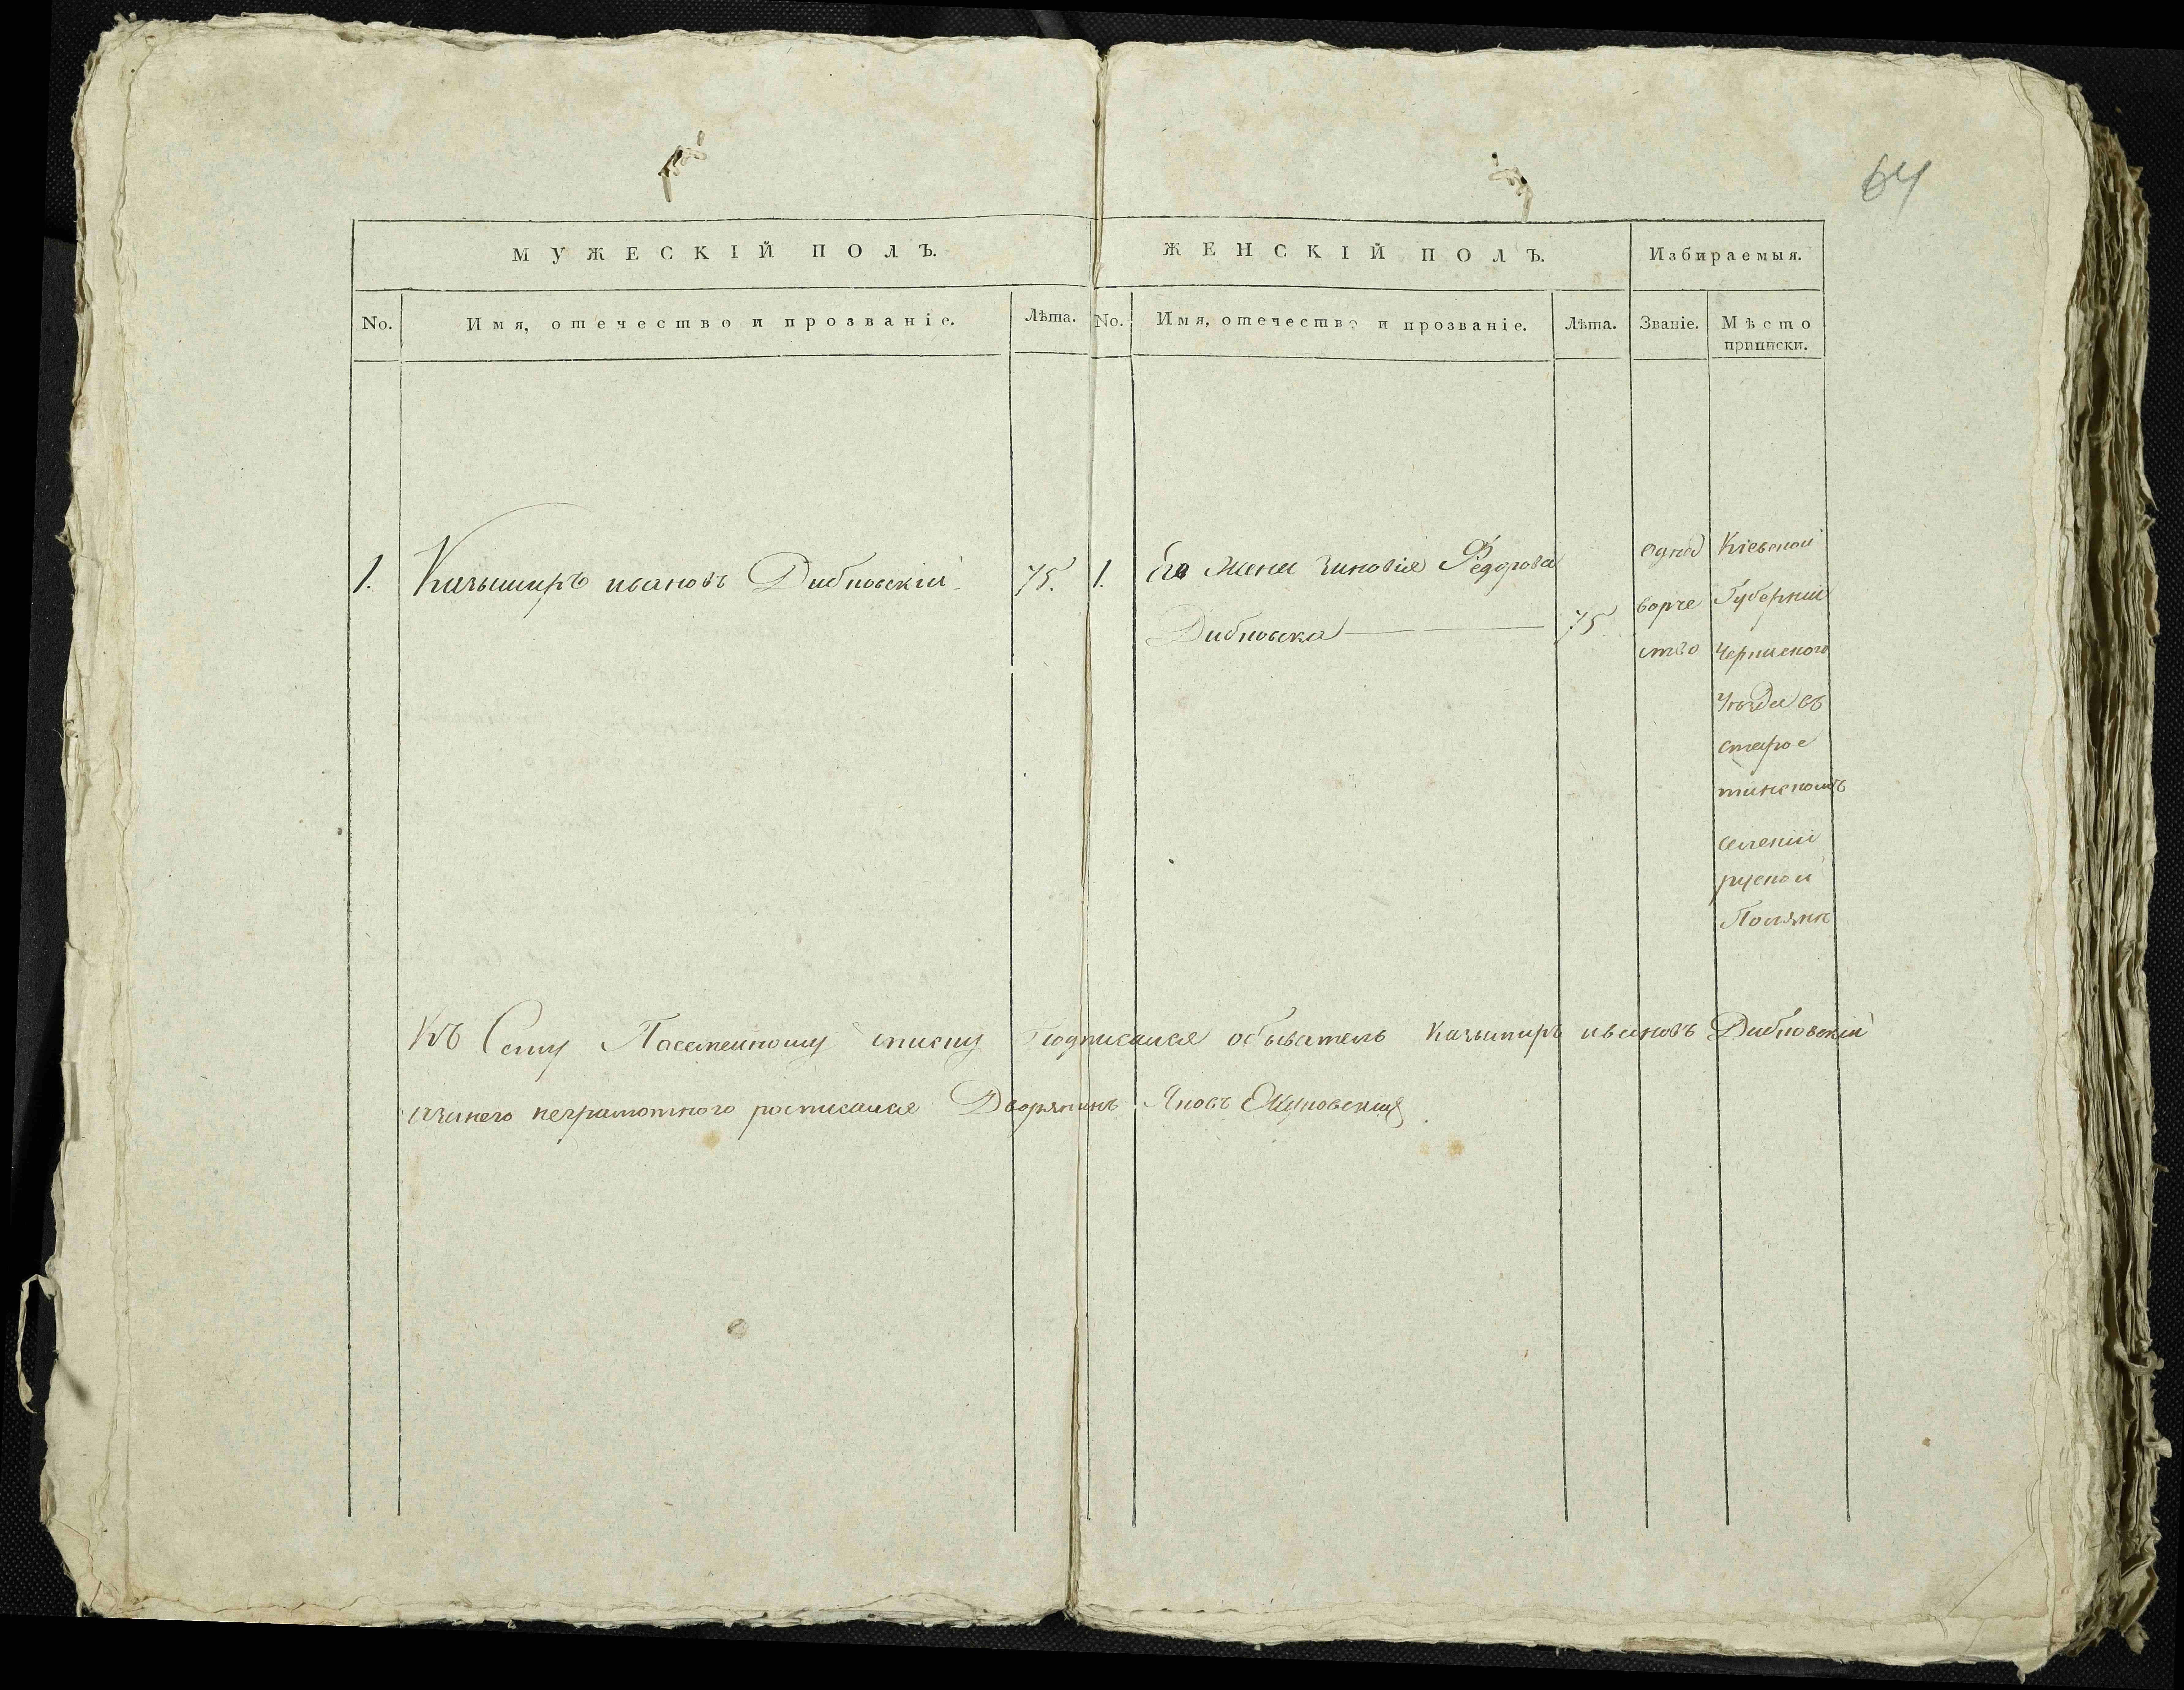 64
МУЖЕСКІЙ ПОЛЪ. ЖЕНСКІЙ ПОЛЪ. Избираемыя.
No. Имя, отечество и прозваніе. Лѣта. No. Имя, отечество и прозваніе. Лѣта. Званіе. Мѣсто приписки.
1. Казымиръ ивановъ Дибновскій 75. 1. Его жена Зиновія Федорова
Дибновска 75
однод
ворче
ство
Кіевской
Губерніи
Черкаского
Уѣзда въ
старое
тинскомъ
селеніи
руской
Полянѣ
Къ Сему Посемейному списку подписался обыватель Казымиръ ивановъ Дибновскій
азанего неграмотного росписался Дворянинъ Яковъ